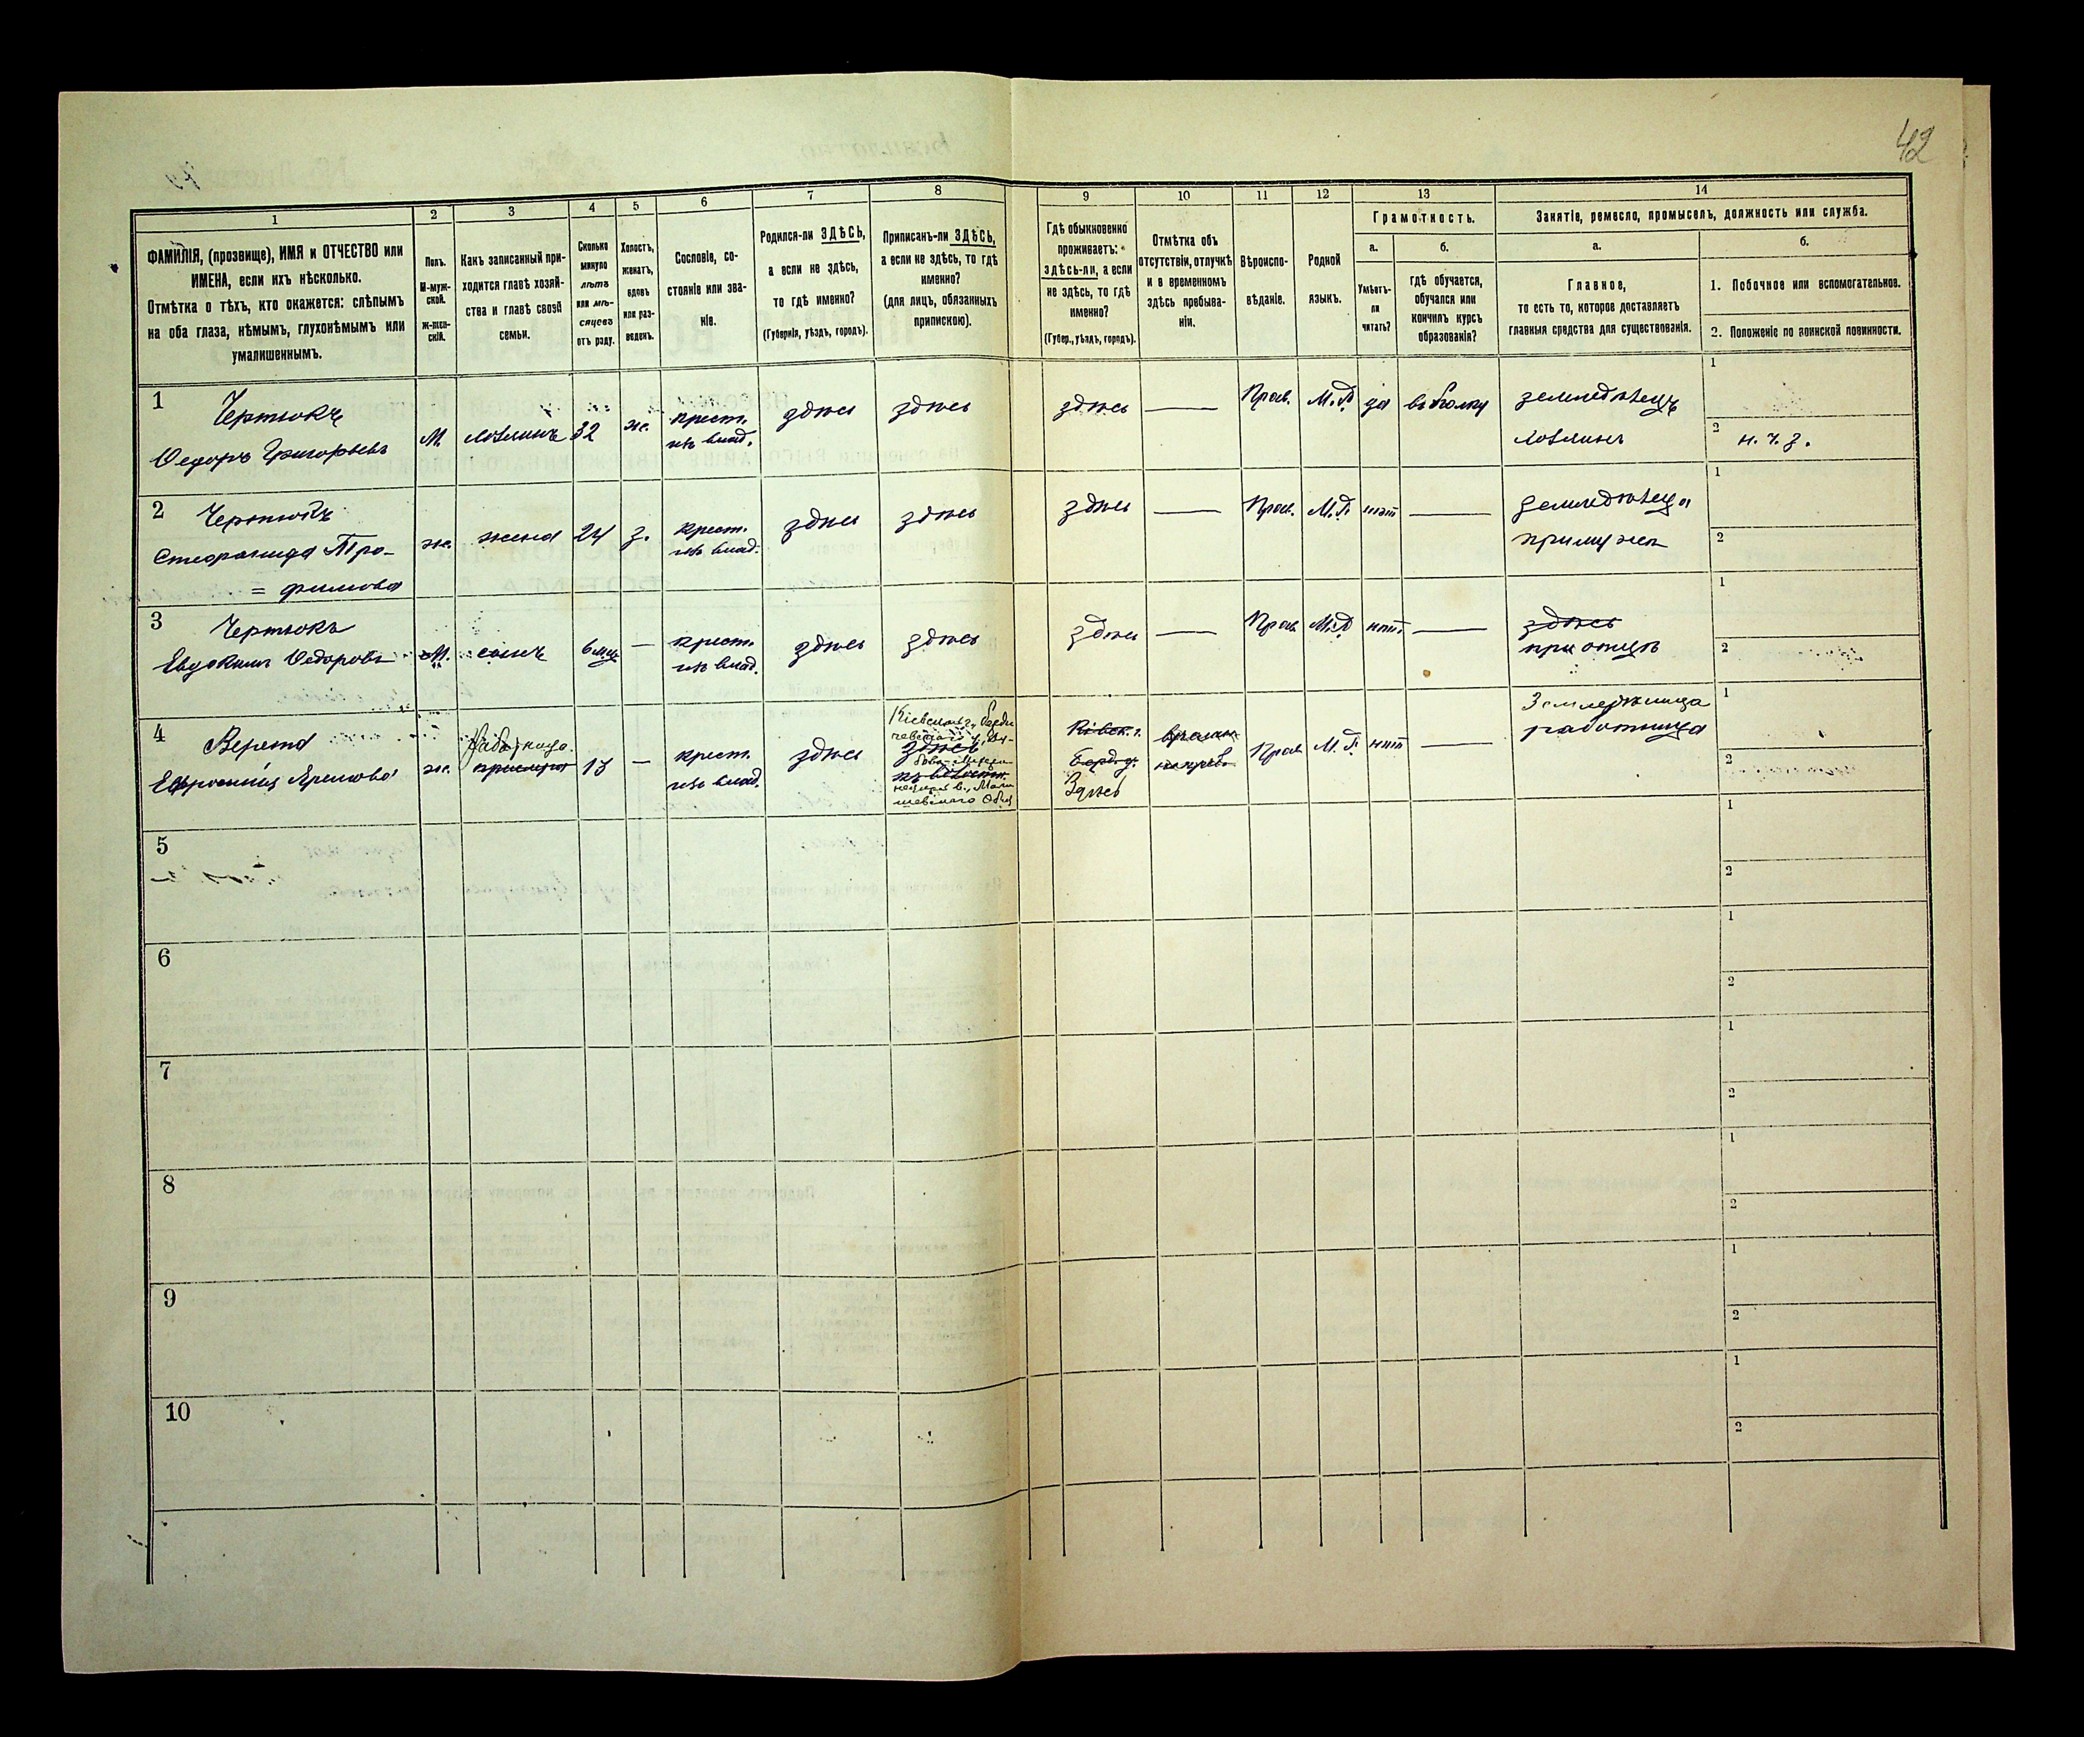 42
1
2
3
4
5
6
7
8
9
10
11
12
13
14
ФАМИЛІЯ, (прозвище), ИМЯ и ОТЧЕСТВО или
ИМЕНА, если ихъ нѣсколько.
Отмѣтка о тѣхъ, кто окажется: слѣпымъ
на оба глаза, нѣмымъ, глухонѣмымъ или
умалишеннымъ.
Полъ.
М-муж-
ской.
Ж-жен-
скій.
Какъ записанный при-
ходится главѣ хозяй-
ства и главѣ своей
семьи.
Сколько
минуло
лѣтъ
или мѣ-
сяцевъ
отъ роду.
Холостъ,
женатъ,
вдовъ
или раз-
веденъ.
Сословіе, со-
стояніе или зва-
ніе.
Родился-ли ЗДѢСЬ,
а если не здѣсь,
то гдѣ именно?
(Губернія, уѣздъ, городъ).
Приписанъ-ли ЗДѢСЬ,
а если не здѣсь, то гдѣ
именно?
(для лицъ, обязанныхъ
припискою).
Гдѣ обыкновенно
проживаетъ:
здѣсь-ли, а если
не здѣсь, то гдѣ
именно?
(Губер., уѣздъ, городъ).
Отмѣтка объ
отсутствіи, отлучкѣ
и о временномъ
здѣсь пребыва-
ніи.
Вѣроиспо-
вѣданіе.
Родной
языкъ.
Грамотность.
а.
б.
Умѣетъ-
ли
читать?
гдѣ обучается,
обучался или
кончилъ курсъ
образованія?
Занятіе, ремесло, промыселъ, должность или служба.
а.
б.
Главное,
то есть то, которое доставляетъ
главныя средства для существованія.
1. Побочное или вспомогательное.
2. Положеніе по воинской повинности.
1
Чертюкъ
Федоръ Григорьевъ
М.
хозяинъ
32
ж.
крест.
изъ влад.
здѣсь
здѣсь
здѣсь
—
Прав.
М.Р.
да
въ полку
земледѣлецъ
хозяинъ
1
2
н. ч. з.
2
Чертюкъ
Стефанида Тро-
= фимова
ж.
жена
24
з.
крест.
изъ влад.
здѣсь
здѣсь
здѣсь
—
Прав.
М.Р.
нѣт
—
земледѣлица
при мужѣ
1
2
3
Чертюкъ
Евдокимъ Федоровъ
М.
сынъ
6 мц
—
крест.
изъ влад.
здѣсь
здѣсь
здѣсь
—
Прав
М.Р.
нѣт
—
здѣсь
при отцѣ
1
2
4
Ефросинія Яремова
ж.
Работница
13
—
крест.
изъ влад.
здѣсь
Кіевской г., Берди
чевскаго у.
здѣсь
Кіевск. г.
Берд. у.
Здѣсь
времен.
Прав
М.Р.
нѣт
—
Земледѣлица
работница
1
2
5
1
2
6
1
2
7
1
2
8
1
2
9
1
2
10
1
2